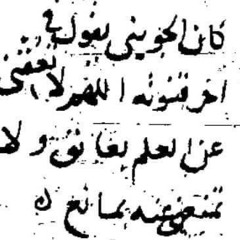 كان الجويني يقول في
اخر قنوته اللهم لا تعقني
عن العلم بعائق ولا
تمنعني عنه بمانع